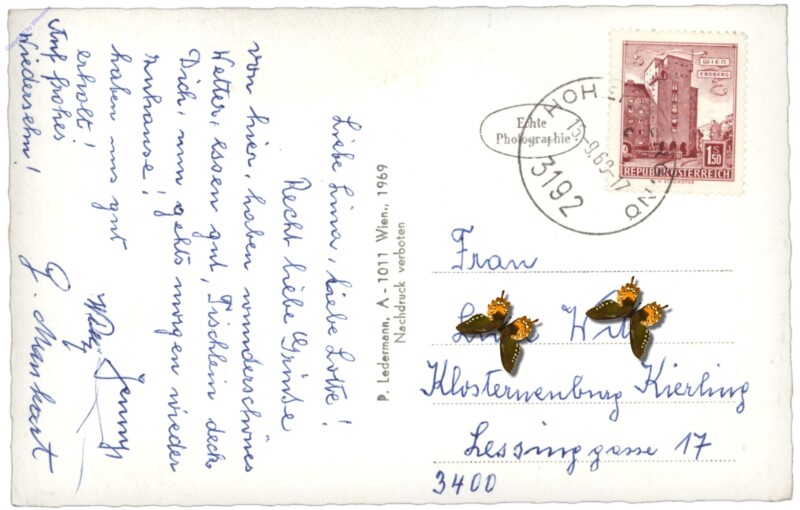 Liebe Lina, liebe Lotte!
Recht liebe Grüsse
von hier, haben wunderschönes
Wetter, essen gut, Tischlein deck
Dich, nun gehts morgen wieder
zuhause!
haben uns gut
erholt!
Auf frohes
Wiedersehn!
Jenny
P. Ledermann, A - 1011 Wien., 1969
Nachdruck verboten
Echte
Photographie
15.-9.69-17
3192
WIEN
ERDBERG
1.50
REPUBLIK ÖSTERREICH
Frau
Klosterneuburg Kierling
Lessinggasse 17
3400